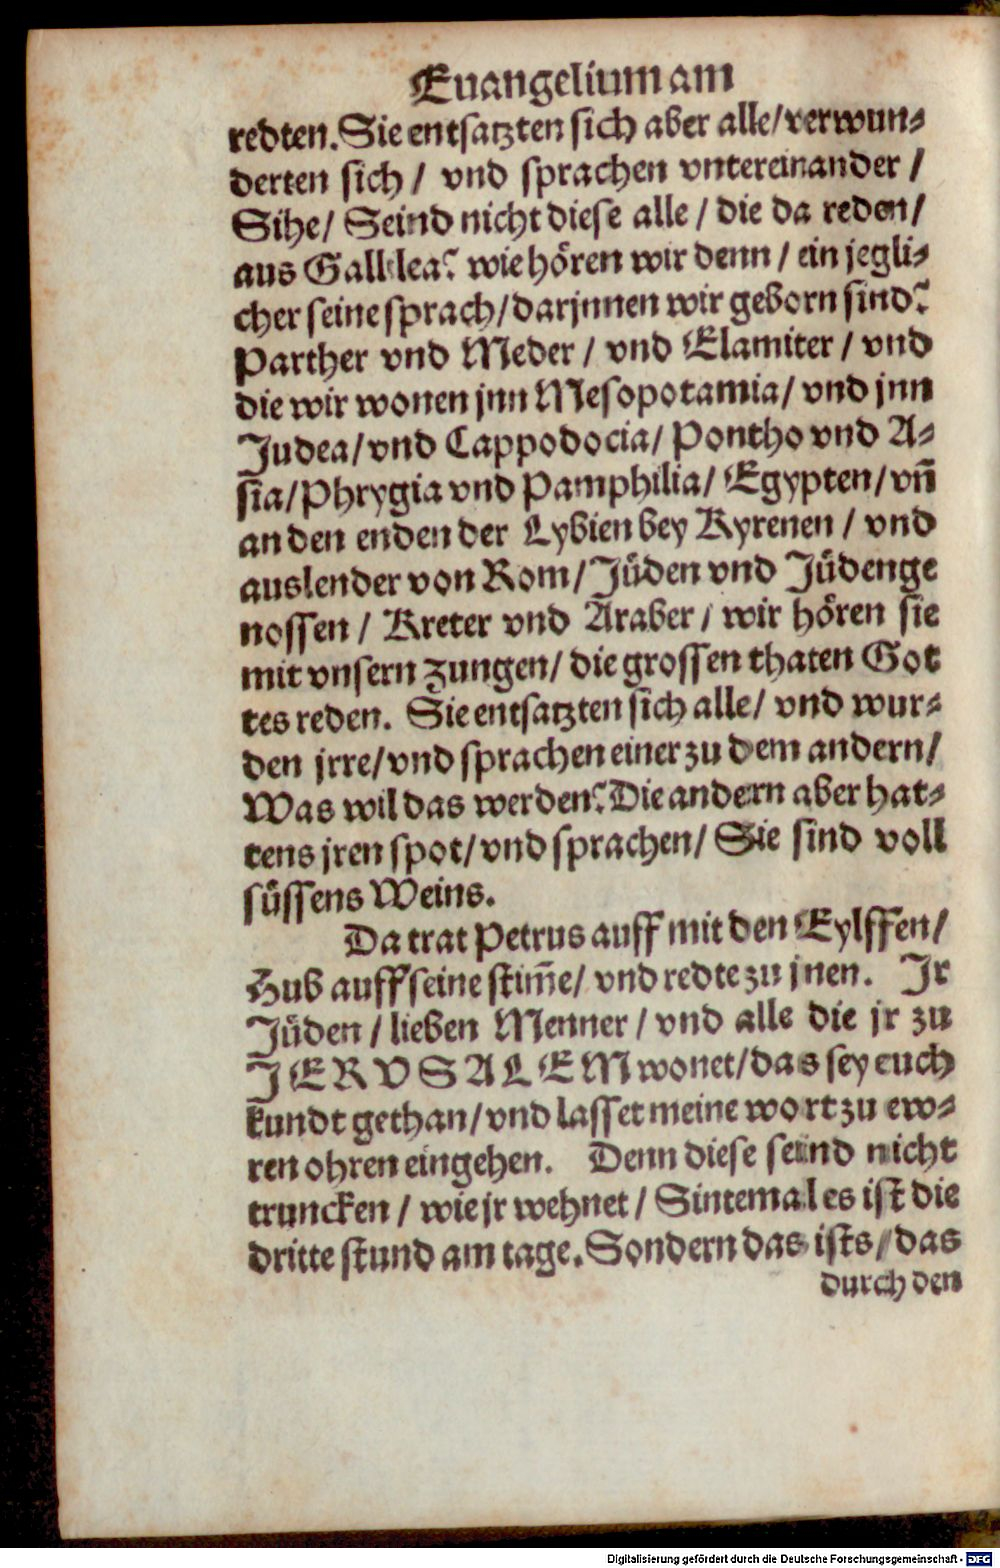 Euangelium am
redten. Sie entsatzten sich aber alle/ verwun⸗
derten sich / vnd sprachen vntereinander /
Sihe/ Seind nicht diese alle / die da reden/
aus Gallilea? wie hören wir denn / ein jegli⸗
cher seine sprach/ darjnnen wir geborn sind?
Parther vnd Meder / vnd Elamiter / vnd
die wir wonen jnn Mesopotamia/ vnd jnn
Judea/ vnd Cappodocia/ Pontho vnd A⸗
sia/ Phrygia vnd Pamphilia/ Egypten/ vñ
an den enden der Lybien bey Kyrenen / vnd
auslender von Rom/ Jüden vnd Jüdenge
nossen / Kreter vnd Araber / wir hören sie
mit vnsern zungen/ die grossen thaten Got
tes reden. Sie entsatzten sich alle/ vnd wur⸗
den jrre/ vnd sprachen einer zu dem andern/
Was wil das werden? Die andern aber hat⸗
tens jren spot/ vnd sprachen/ Sie sind voll
süssens Weins.
Da trat Petrus auff mit den Eylffen/
Hub auff seine stim̃e/ vnd redte zu jnen. Jr
Jüden / lieben Menner / vnd alle die jr zu
JERVSALEM wonet/ das sey euch
kundt gethan/ vnd lasset meine wort zu ew⸗
ren ohren eingehen. Denn diese seind nicht
truncken / wie jr wehnet / Sintemal es ist die
dritte stund am tage. Sondern das ists/ das
durch den
Digitalisierung gefördert durch die Deutsche Forschungsgemeinschaft - DFG